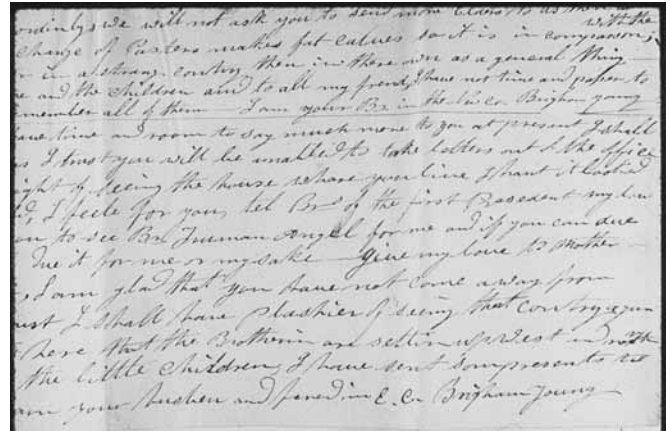 we will not ask you to send more Elders to us
with the
change of Pasters makes fat calves so it is in comparason
in a strang contry then in there own as a general thing
and the children and to all my frends, I have not time and paper to
all of them I am your Br in the New Cov Brigham young
have time and room to say much more to you at present I shall
I trust you will be unabled to take letters out of the office
of seeing the house whare you live I want it
I feele for you, tel Brs of the first Presedent my love
to see Br Truman Angel for me and if you can due
due it for me or my sake give my love to Mother
I am glad that you have not come away from
I shall have plashier of seeing that contry again
here that the Brotherin are setlin up West and
the little children, I have sent som presents
your husben and frend in E. Cv Brigham Young